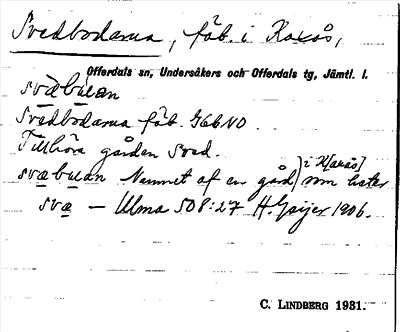 Svedbodarna, fäb. i Kaxås,
Offerdals sn, Undersåkers och Offerdals tg, Jämtl. l.
svæbúan
Svedbodarna fäb. G6bNO.
Tillhöra gården Sved.
svæbúan Namnet af en gård) i K[axås] som heter
svæ — Ulma 508:27 H. Geijer 1906.
C. LINDBERG 1931.